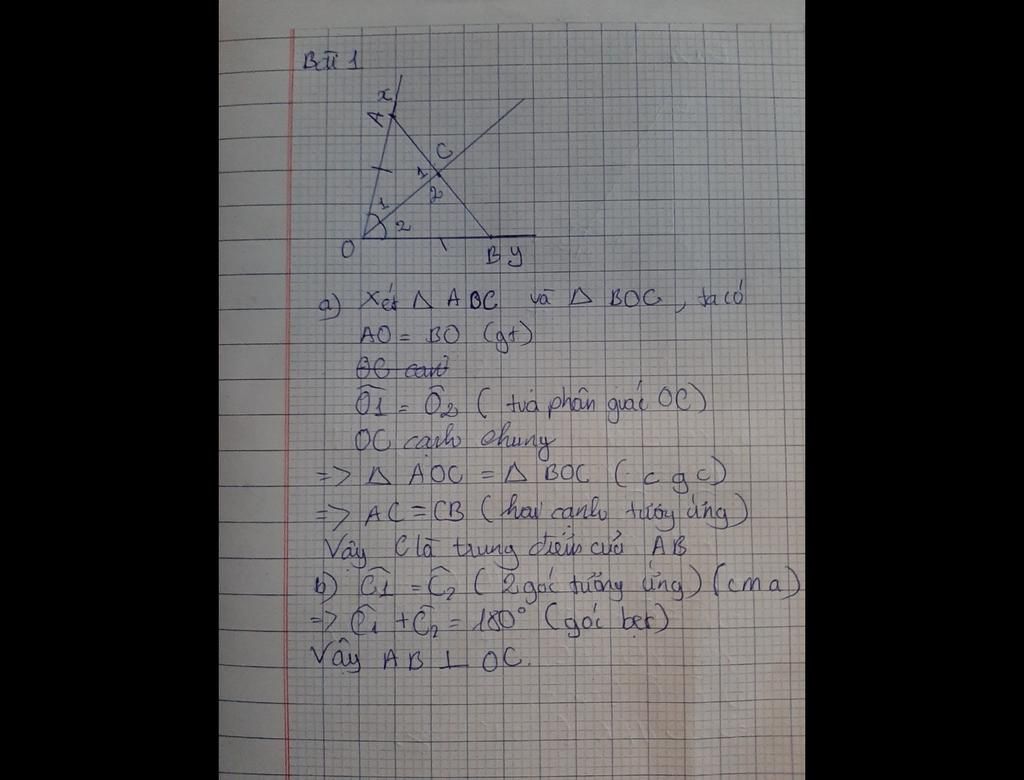 Bài 1
x
A
C
1
2
1
2
O
B y
a) Xét Δ ABC và Δ BOC, ta có
AO = BO (gt)
OC cạnh
Ô1 = Ô2 ( tia phân giác OC)
OC cạnh chung
=> Δ AOC = Δ BOC ( c g c)
=> AC = CB ( hai cạnh tương ứng)
Vậy C là trung điểm của AB
b) Ĉ1 = Ĉ2 ( 2 góc tương ứng) (cm a)
=> Ĉ1 + Ĉ2 = 180° (góc bẹt)
Vậy AB ⊥ OC.